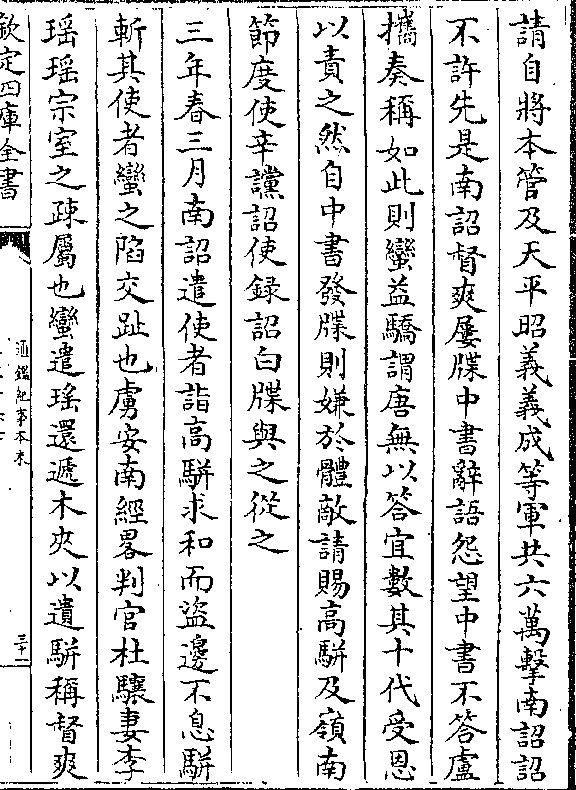 請自將本管及天平昭義義成等軍共六萬擊南詔詔
不許先是南詔督爽屢牒中書辭語怨望中書不答盧
攜奏稱如此則蠻益驕謂唐無以答宜數其十代受恩
以責之然自中書發牒則嫌於體敵請賜高駢及嶺南
節度使辛讜詔使録詔白牒與之從之
三年春三月南詔遣使者詣高駢求和而盜邊不息駢
斬其使者蠻之陷交趾也虜安南經畧判官杜驤妻李
瑶瑶宗室之疎屬也蠻遣瑶還遞木夾以遺駢稱督爽
欽定四庫全書
通鑑紀事本末
三十二